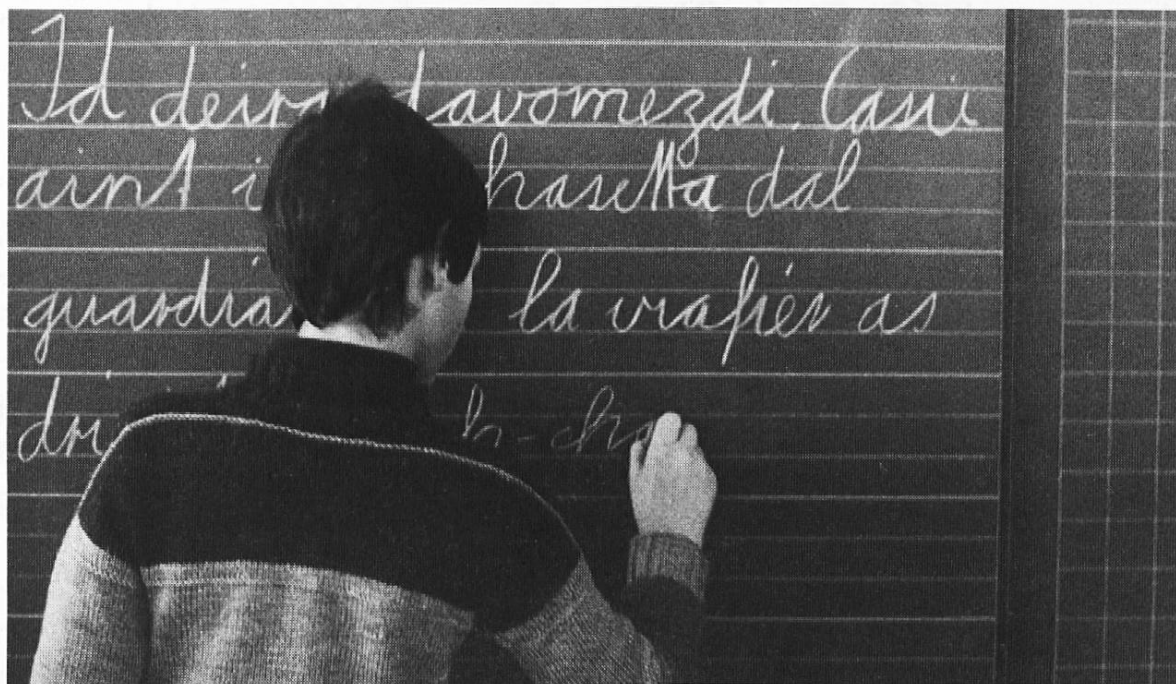 Id deira davomezdi. Casü
aint i hasetta dal
guardia la viafier as
dri h-cha